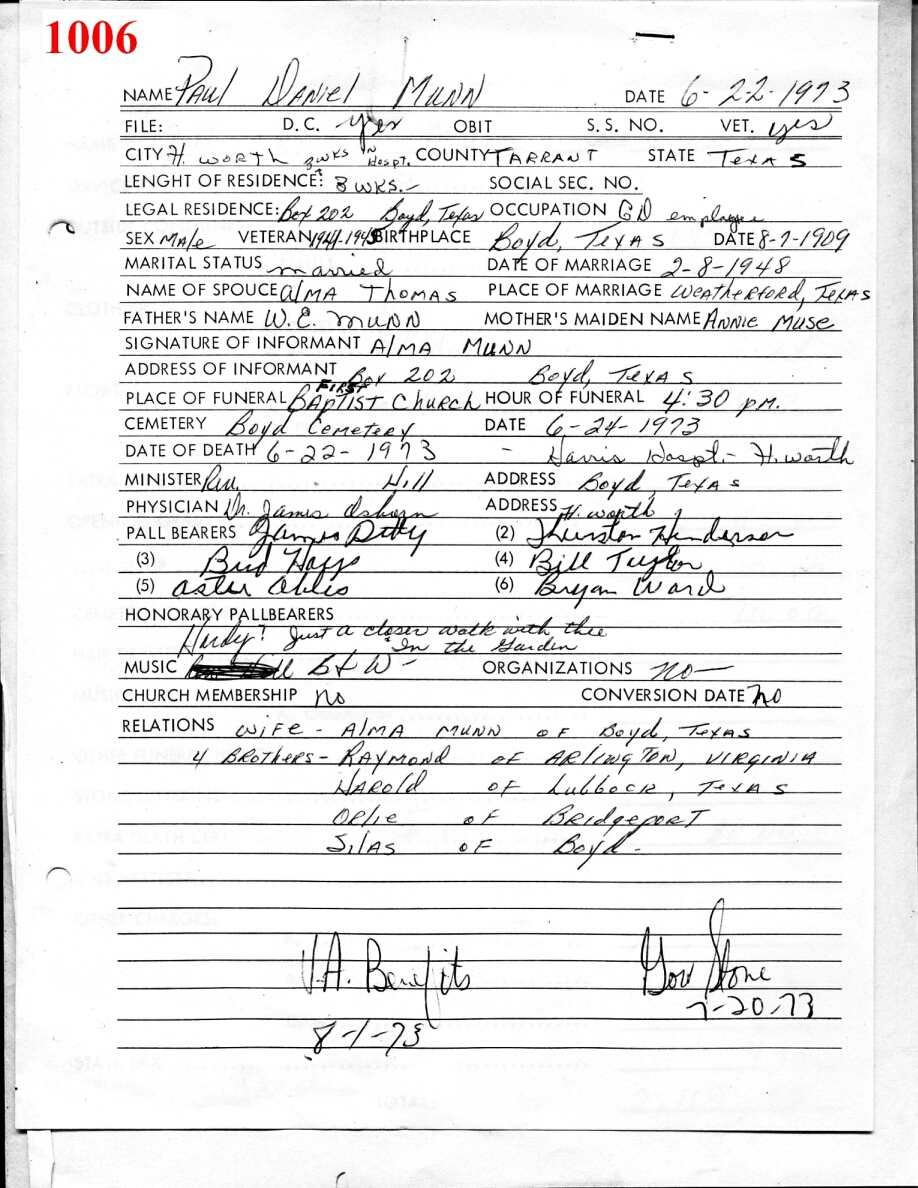 1006
NAME Paul Daniel Munn DATE 6-22-1973
FILE: D.C. yes OBIT S.S. NO. VET. yes
CITY Ft. Worth 3 wks in Hospt. COUNTY Tarrant STATE Texas
LENGHT OF RESIDENCE: 3 wks.- SOCIAL SEC. NO.
LEGAL RESIDENCE: Box 202 Boyd, Texas OCCUPATION GD employee
SEX Male VETERAN 1941-1945 BIRTHPLACE Boyd, Texas DATE 8-7-1909
MARITAL STATUS married DATE OF MARRIAGE 2-8-1948
NAME OF SPOUCE Alma Thomas PLACE OF MARRIAGE Weatherford, Texas
FATHER'S NAME W.E. Munn MOTHER'S MAIDEN NAME Annie Muse
SIGNATURE OF INFORMANT Alma Munn
ADDRESS OF INFORMANT Box 202 Boyd, Texas
PLACE OF FUNERAL First Baptist Church HOUR OF FUNERAL 4:30 pm.
CEMETERY Boyd Cemetery DATE 6-24-1973
DATE OF DEATH 6-22-1973 - Harris Hospt.- Ft. Worth
MINISTER Rev. Hill ADDRESS Boyd, Texas
PHYSICIAN Dr. James Osborn ADDRESS Ft. Worth
PALL BEARERS James (2) Thurston Henderson
(3) Bud (4) Bill Taylor
(5) (6) Bryan Ward
HONORARY PALLBEARERS
Hardy? Just a closer walk with thee
In the Garden
MUSIC B+W- ORGANIZATIONS no-
CHURCH MEMBERSHIP no CONVERSION DATE no
RELATIONS Wife - Alma Munn of Boyd, Texas
4 Brothers - Raymond of Arlington, Virginia
Harold of Lubbock, Texas
Oplie of Bridgeport
Silas of Boyd-
V.A. Benefits Gov Stone
7-20-73
8-1-73